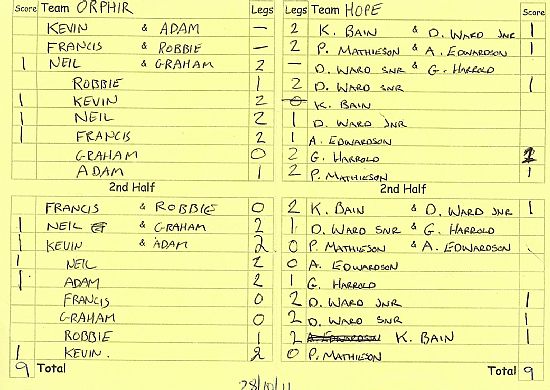 Score Team ORPHIR Legs Legs Team HOPE Score
KEVIN & ADAM — 2 K. BAIN & D. WARD JNR 1
FRANCIS & ROBBIE — 2 P. MATHIESON & A. EDWARDSON 1
1 NEIL & GRAHAM 2 — D. WARD SNR & G. HARROLD
ROBBIE 1 2 D. WARD SNR 1
1 KEVIN 2 0 K. BAIN
1 NEIL 2 1 D. WARD JNR
1 FRANCIS 2 1 A. EDWARDSON
GRAHAM 0 2 G. HARROLD 1
ADAM 1 2 P. MATHIESON 1
2nd Half 2nd Half
FRANCIS & ROBBIE 0 2 K. BAIN & D. WARD JNR 1
1 NEIL & GRAHAM 2 1 D. WARD SNR & G. HARROLD
1 KEVIN & ADAM 2 0 P. MATHIESON & A. EDWARDSON
1 NEIL 2 0 A. EDWARDSON
1 ADAM 2 1 G. HARROLD
FRANCIS 0 2 D. WARD JNR 1
GRAHAM 0 2 D. WARD SNR 1
ROBBIE 1 2 A. EDWARDSON K. BAIN 1
1 KEVIN. 2 0 P. MATHIESON
9 Total Total 9
28/10/11